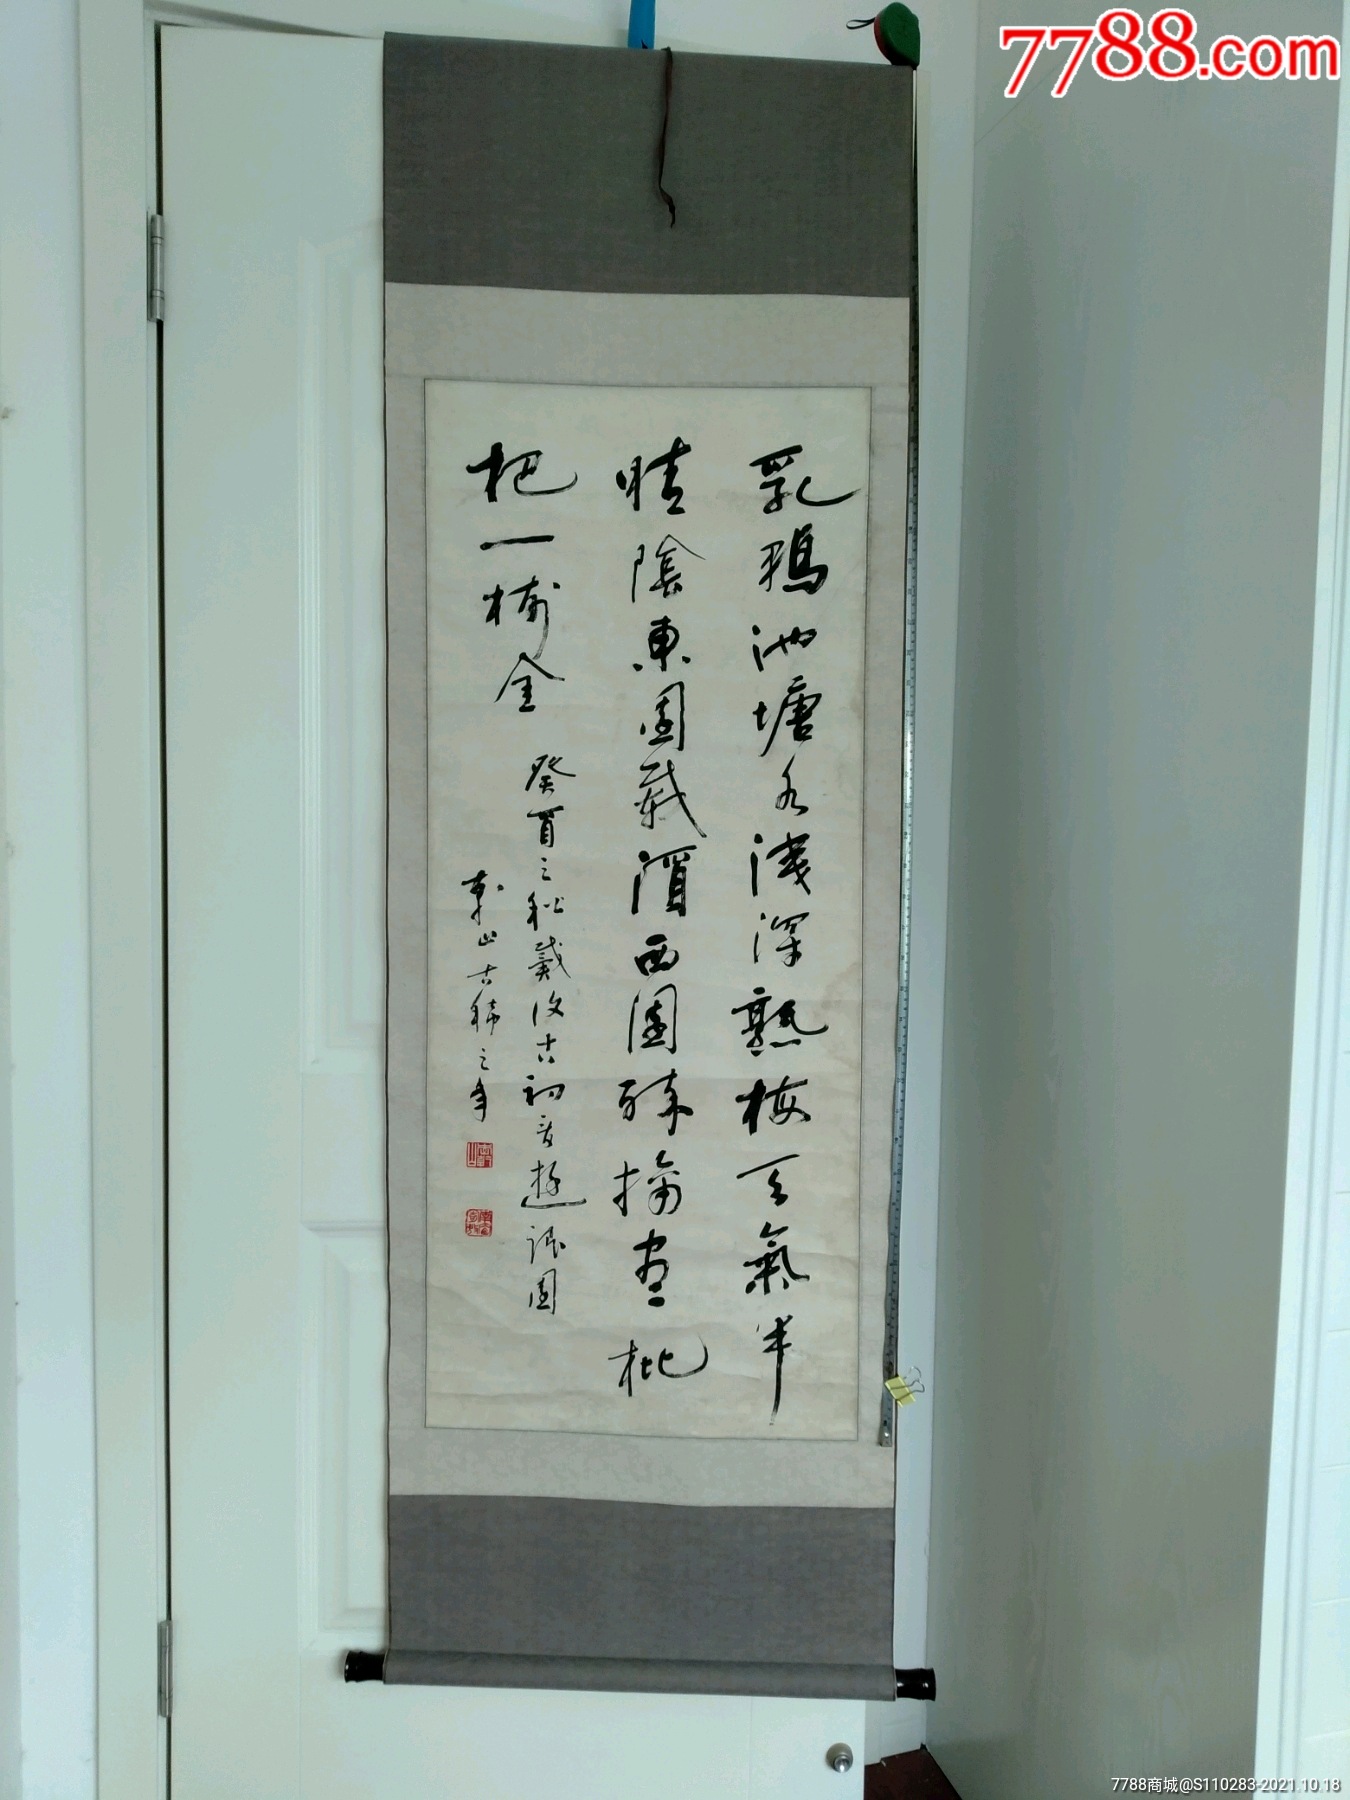 7788.com
乳鴨池塘水淺深熟梅天氣半
晴陰東園載酒西園醉摘盡枇
杷一樹金
癸酉之秋戴復古初夏遊張園
山古稀之年
7788商城@S110283-2021.10.18